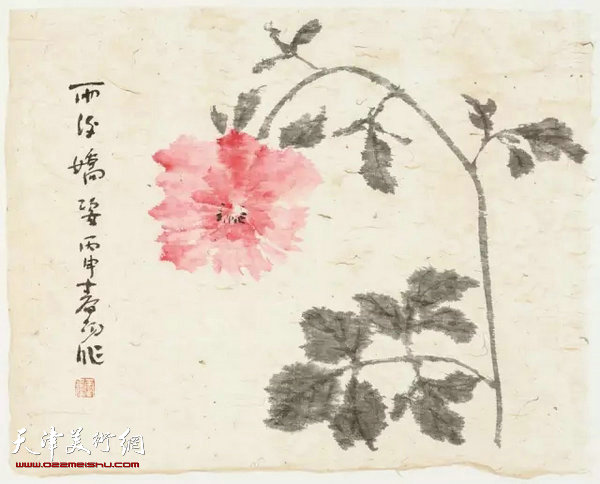 雨後嬌姿丙申
天津美術網
www.022meishu.com